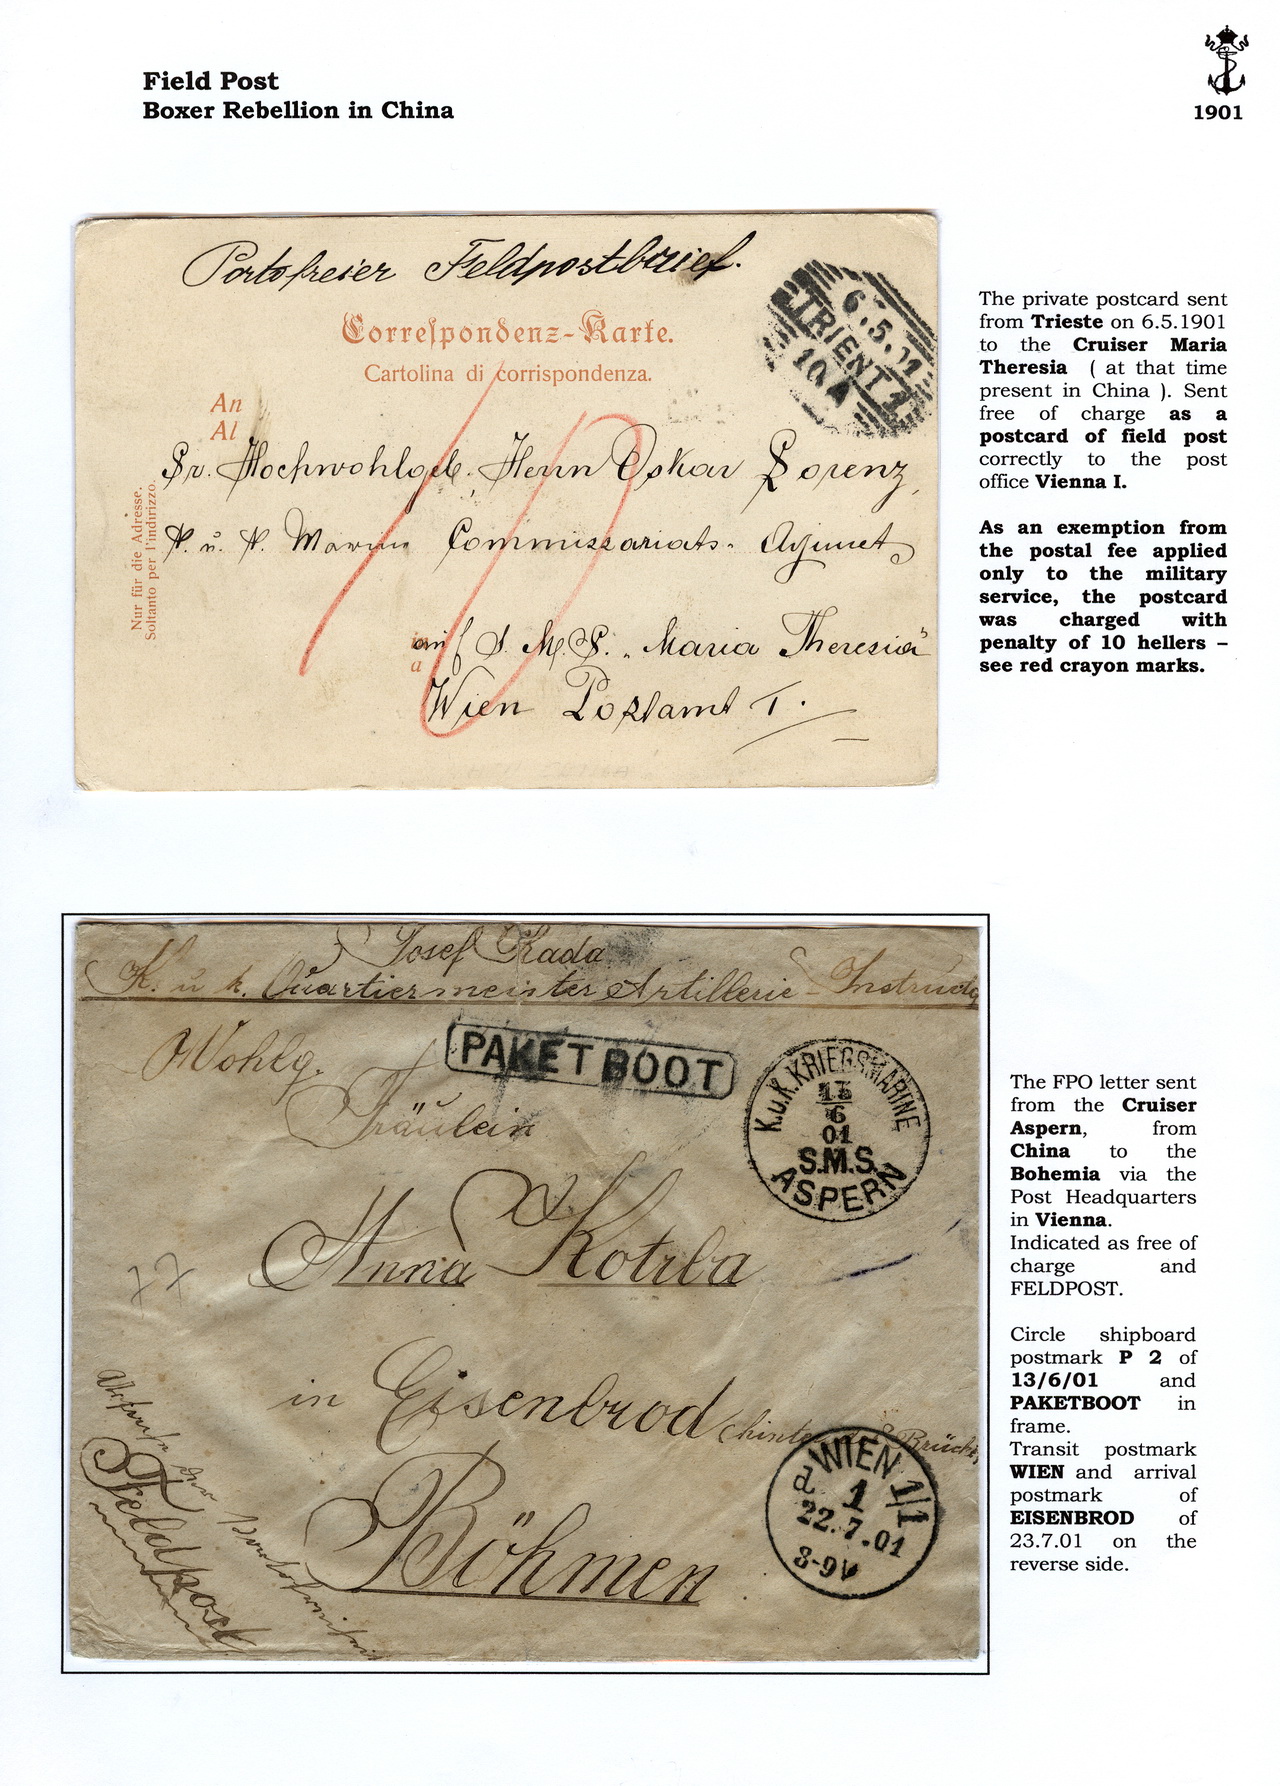 Field Post
Boxer Rebellion in China
1901
Portofreier Feldpostbrief.
Correspondenz-Karte.
Cartolina di corrispondenza.
An
Al
Nur für die Adresse.
Soltanto per l'indirizzo.
6.5.11
TRIENT 1
10 A
Sr. Hochwohlgeb. Herrn Oskar Lorenz,
K. u. K. Marine Commissariats-Adjunct
auf S. M. S. „Maria Theresia"
a
Wien Postamt I.
10
The private postcard sent
from Trieste on 6.5.1901
to the Cruiser Maria
Theresia ( at that time
present in China ). Sent
free of charge as a
postcard of field post
correctly to the post
office Vienna I.
As an exemption from
the postal fee applied
only to the military
service, the postcard
was charged with
penalty of 10 hellers –
see red crayon marks.
Josef Kada
K. u. k. Quartiermeister Artillerie-Instructo
Wohlg.
PAKETBOOT
K.u.K. KRIEGSMARINE
13
6
01
S.M.S.
ASPERN
Fräulein
Anna Kotrla
77
in Eisenbrod
Böhmen
Feldpost
WIEN 1/1
a
1
22.7.01
8-9V
The FPO letter sent
from the Cruiser
Aspern, from
China to the
Bohemia via the
Post Headquarters
in Vienna.
Indicated as free of
charge and
FELDPOST.
Circle shipboard
postmark P 2 of
13/6/01 and
PAKETBOOT in
frame.
Transit postmark
WIEN and arrival
postmark of
EISENBROD of
23.7.01 on the
reverse side.